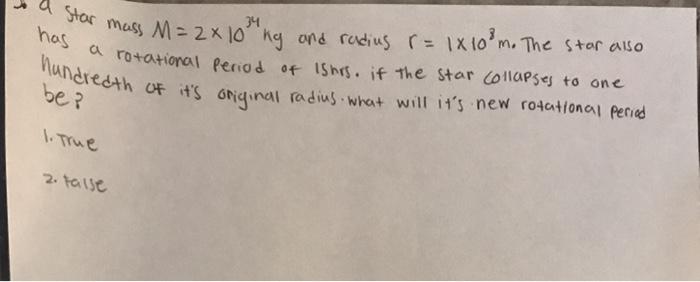 a star mass M = 2 x 10^34 kg and radius r = 1 x 10^8 m. The star also
has a rotational Period of 15hrs. if the star collapses to one
hundredth of it's original radius. what will it's new rotational period
be?
1. True
2. False